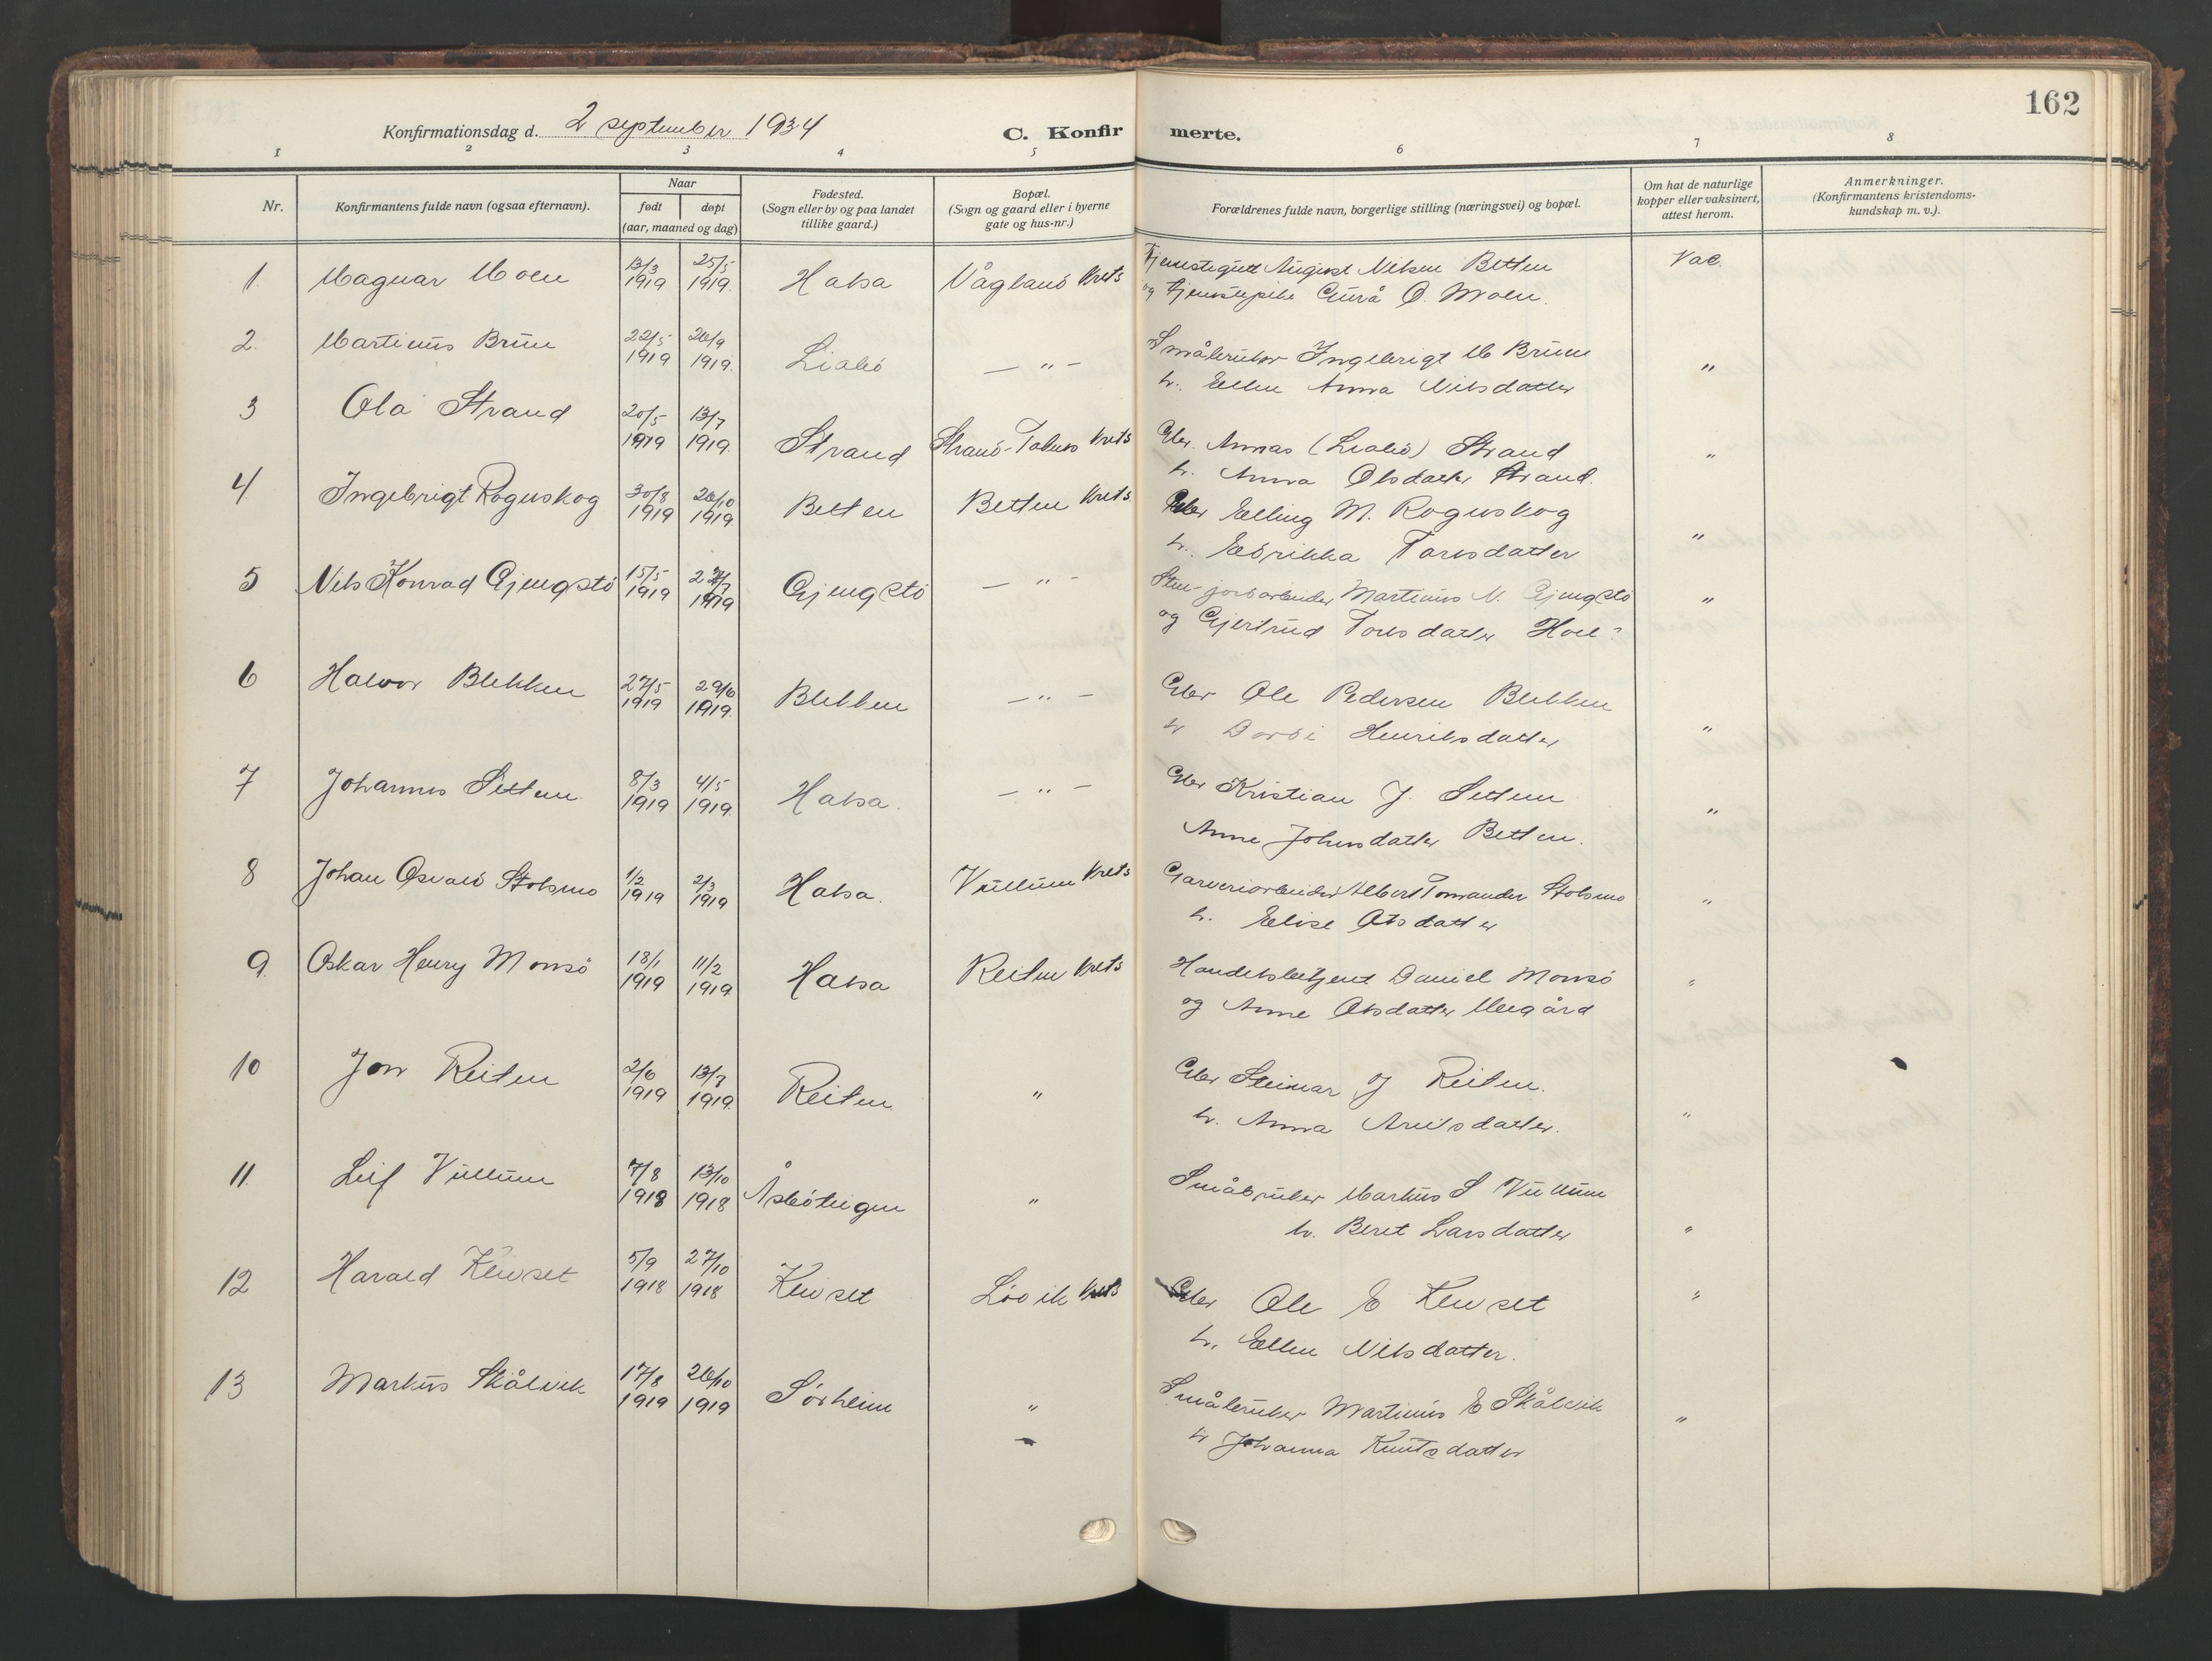 162
Konfirmationsdag d. 2 september 1934
C. Konfirmerte.
1 2 3 4 5 6 7 8
Nr.
Konfirmantens fulde navn (ogsaa efternavn).
Naar
født døpt
(aar, maaned og dag)
Fødested.
(Sogn eller by og paa landet
tillike gaard.)
Bopæl.
(Sogn og gaard eller i byerne
gate og hus-nr.)
Forældrenes fulde navn, borgerlige stilling (næringsvei) og bopæl.
Om hat de naturlige
kopper eller vaksinert,
attest herom.
Anmerkninger.
(Konfirmantens kristendoms-
kundskap m. v.).
1. Magnar Moen 13/3 1919 25/5 1919. Halsa Vågland Krets Tjenestegutt August Nilsen Betten Vac.
og Tjenestepike Gurå O. Moen.
2. Martinus Bruun 22/5 1919 26/9 1919. Liabö — " — Småbruker Ingebrigt M Bruun "
h. Ellen Anna Nilsdatter
3 Ola Strand 20/5 1919 13/7 1919. Strand Strand-Todnes Krets Gbr. Annas (Liabö) Strand "
h. Anna Olsdatter Strand.
4 Ingebrigt Roguskog 30/8 1919 26/10 1919 Betten Betten Krets Gbr Elling M. Roguskog "
h. Edrikka Larsdatter
5 Nils Konrad Gjengstö 15/5 1919 27/7 1919 Gjengstö — " — Sten-jordarbeider Martinus N. Gjengstö "
og Gjertrud Toresdatter Hoel
6 Halvor Blekken 27/5 1919 29/6 1919. Blekken — " — Gbr Ole Pedersen Blekken
h Dordi Henriksdatter "
7 Johannes Settem 8/3 1919 4/5 1919. Halsa. — " — Gbr Kristian J. Settem
Anne Johnsdatter Betten. "
8 Johan Osvald Stolsmo 1/2 1919 2/3 1919 Halsa. Vullum Krets Garveriarbeider Albert Tomander Stolsmo "
h. Elise Olsdatter
9. Oskar Henry Monsö 18/1 1919 11/2 1919 Halsa Reiten Krets Handelsbetjent Daniel Monsö "
og Anne Olsdatter Megård
10 Jon Reiten 2/6 1919 13/7 1919. Reiten " Gbr Steinar J Reiten.
h. Anna Arntsdatter. "
11. Leif Vullum 7/8 1918 13/10 1918 Åsböteigen " Småbruker Markus S Vullum
h. Beret Larsdatter "
12 Harald Kleivset 5/9 1918 27/10 1918 Kleivset Lövik Krets Gbr Ole E Kleivset "
h. Ellen Nilsdatter.
13 Markus Skålvik 17/8 1919 26/10 1919 Sörheim " Småbruker Martinus E Skålvik "
h Johanna Knutsdatter